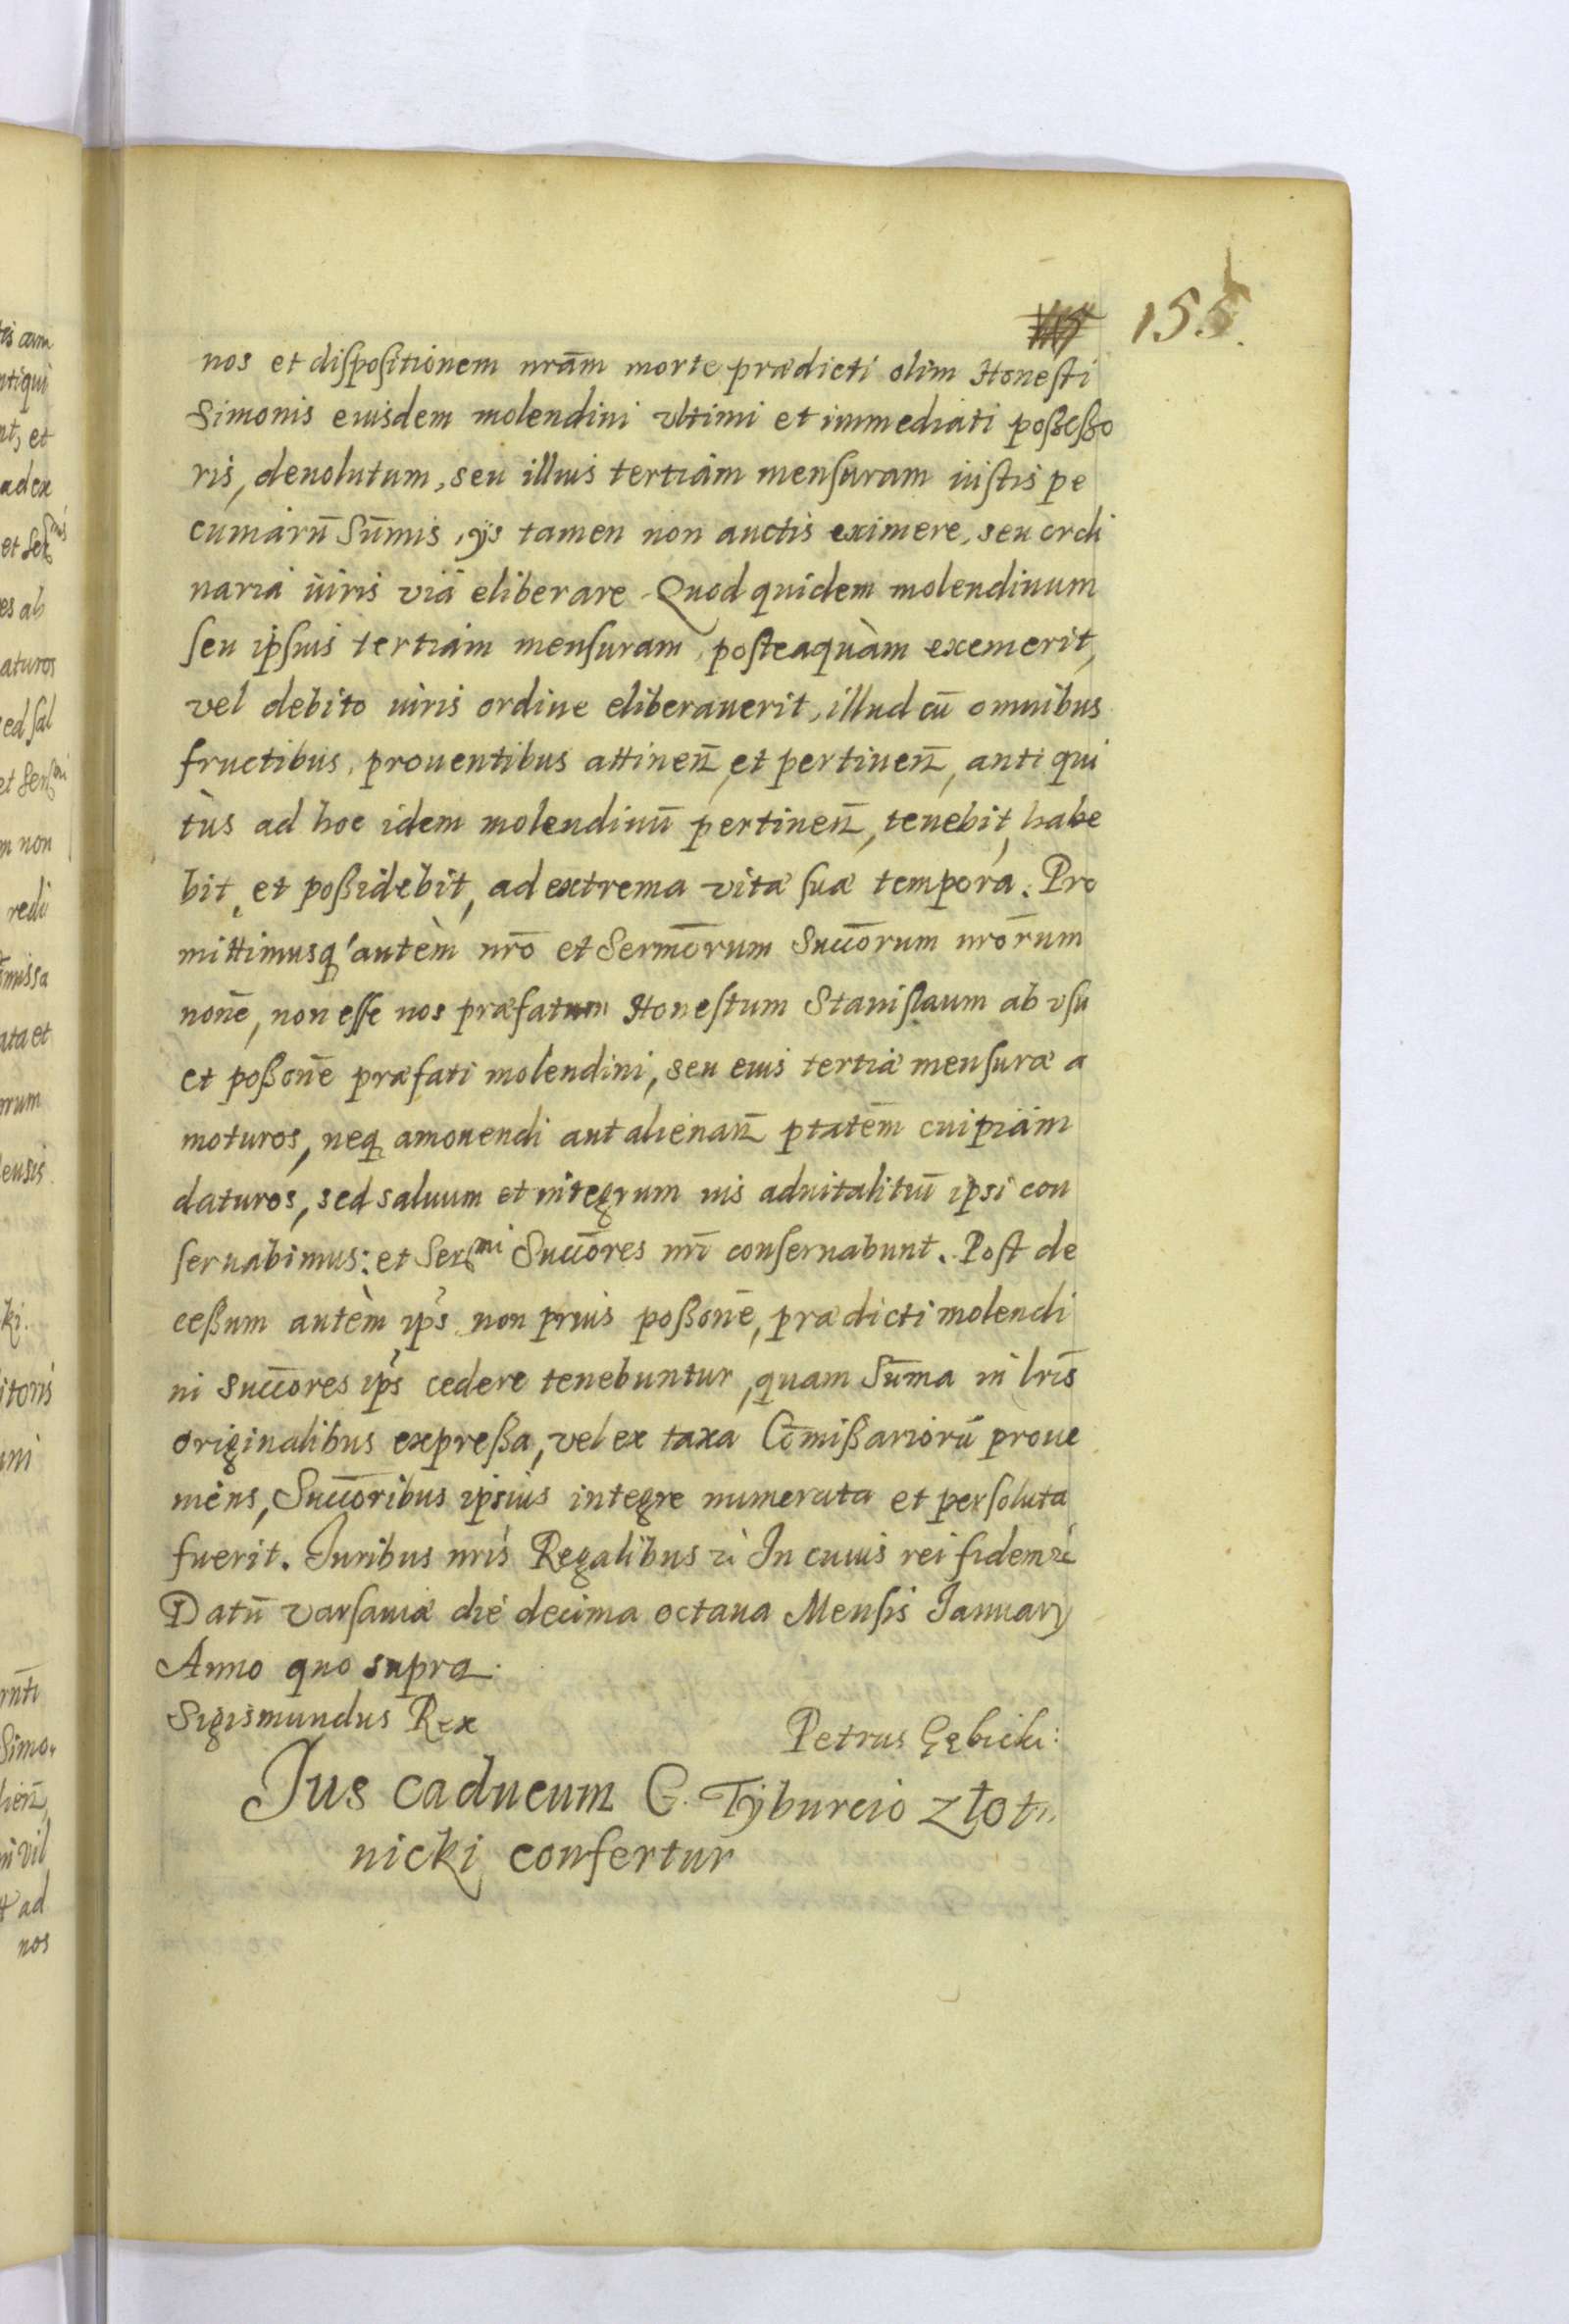 155.
nos et dispositionem nram̃ morte prædicti olim Honesti
Simonis eiusdem molendini vltimi et immediati poßeßo
ris, deuolutum, seu illius tertiam mensuram iustis pe
cuniarũ Sum̃is, ijs tamen non auctis eximere, seu ordi
naria iuris viâ eliberare. Quod quidem molendinum
seu ipsius tertiam mensuram, posteaquàm exemerit,
vel debito iuris ordine eliberauerit, illud cũ omnibus
fructibus, prouentibus attineñ, et pertineñ, antiqui
tùs ad hoc idem molendinũ pertineñ, tenebit, habe
bit, et poßidebit, ad extrema vitæ suæ tempora. Pro
mittimusq autèm nrõ et Sermõrum Succõrum nrõrum
noñe, non esse nos præfatum Honestum Stanislaum ab vsu
et poßoñe præfati molendini, seu eius tertiæ mensuræ a
moturos, neq amouendi aut alienañ ptatem̃ cuipiam
daturos, sed saluum et integrum ius aduitalitiũ ipsi con
seruabimus: et Sermi Succõres nri̅ conseruabunt. Post de
ceßum autèm ips̃ non prius poßoñe, prædicti molendi
ni Succõres ips̃ cedere tenebuntur, quam Sum̃a in lris̃
originalibus expreßa, vel ex taxa Com̃ißariorũ proue
niens, Succõribus ipsius integre numerata et persoluta
fuerit. Juribus nris̃ Regalibus &c. In cuius rei fidem &c.
Datũ Varsauiæ die decima octaua Mensis January
Anno quo supra.
Sigismundus Rex
Petrus Gębicki:
Jus caducum G. Tyburcio Złot
nicki confertur